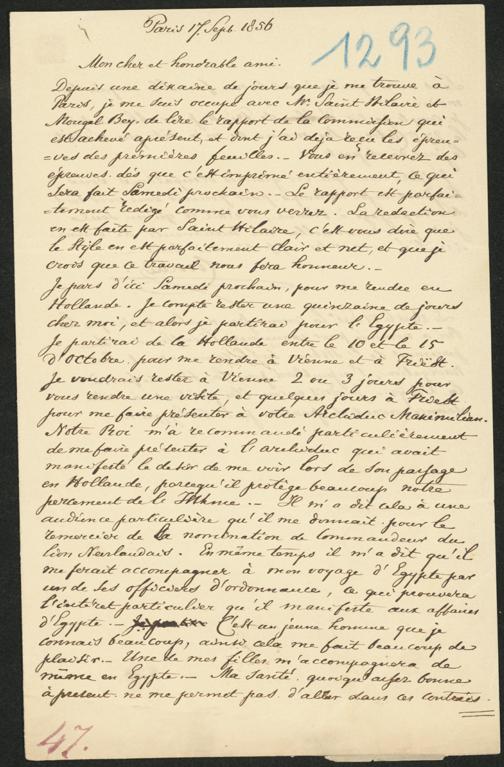 Paris 17 Sept. 1856
1293
Mon cher et honorable ami.
Depuis une dixaine de jours que je me trouve à
Paris, je me suis occupé avec Mr Saint Hilaire et
Mougel Bey, de lire le rapport de la Commission qui
est achevé apresent, et dont j'ai deja reçu les épreu-
=ves des premières feuilles. – Vous en recevrez des
épreuves, dès que c'est imprimé entièrement, ce qui
sera fait Samedi prochain. – Le rapport est parfai-
=tement redigé comme vous verrez. La redaction
en est faite par Saint Hilaire, c'est vous dire que
le style en est parfaitement clair et net, et que je
crois que ce travail nous fera honneur. –
Je pars d'ici Samedi prochain, pour me rendre en
Hollande. Je compte rester une quinzaine de jours
chez moi, et alors je partirai pour l'Egypte. –
Je partirai de la Hollande entre le 10 et le 15
d'Octobre, pour me rendre à Vienne et à Triëst.
Je voudrais rester à Vienne 2 ou 3 jours pour
vous rendre une visite, et quelques jours à Triëst
pour me faire présenter à votre Archiduc Maximilian.
Notre Roi m'a recommandé particulièrement
de me faire présenter à l'archiduc qui avait
manifesté le desir de me voir lors de son passage
en Hollande, parcequ'il protège beaucoup notre
percement de l'Isthme. – Il m'a dit cela à une
audience particulière qu'il me donnait pour le
remercier de la nomination de Commandeur du
lion Neerlandais. En même temps il m'a dit qu'il
me ferait accompagner à mon voyage d'Egypte par
un de ses officiers d'ordonnance, ce qui prouvera
l'intérêt particulier qu'il manifeste aux affaires
d'Egypte. – C'est un jeune homme que je
connais beaucoup, ainsi cela me fait beaucoup de
plaisir. – Une de mes filles m'accompagnera de
même en Egypte. – Ma santé quoiqu'assez bonne
à présent ne me permet pas d'aller dans ces contrées
47.